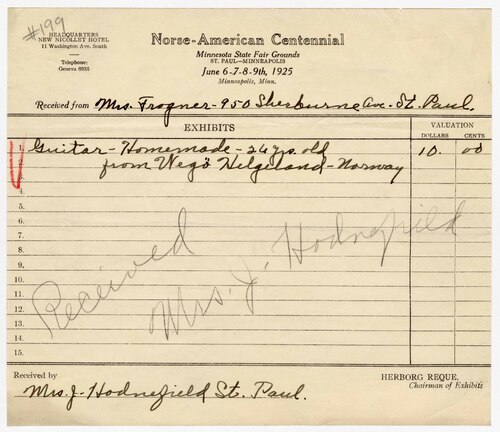 #199
HEADQUARTERS
NEW NICOLLET HOTEL
11 Washington Ave. South
Telephone:
Geneva 6935
Norse-American Centennial
Minnesota State Fair Grounds
ST. PAUL—MINNEAPOLIS
June 6-7-8-9th, 1925
Minneapolis, Minn.
Received from Mrs. Frogner - 950 Sherburne Ave. St. Paul.
EXHIBITS
VALUATION
DOLLARS CENTS
1. Guitar - Homemade - 26 yrs. old 10. 00
2. from Wegö Helgeland - Norway
4.
5.
6.
7.
8.
9.
10.
11.
12.
13.
14.
15.
Received
Mrs. J. Hodnefield
Received by
Mrs. J. Hodnefield St. Paul.
HERBORG REQUE,
Chairman of Exhibits